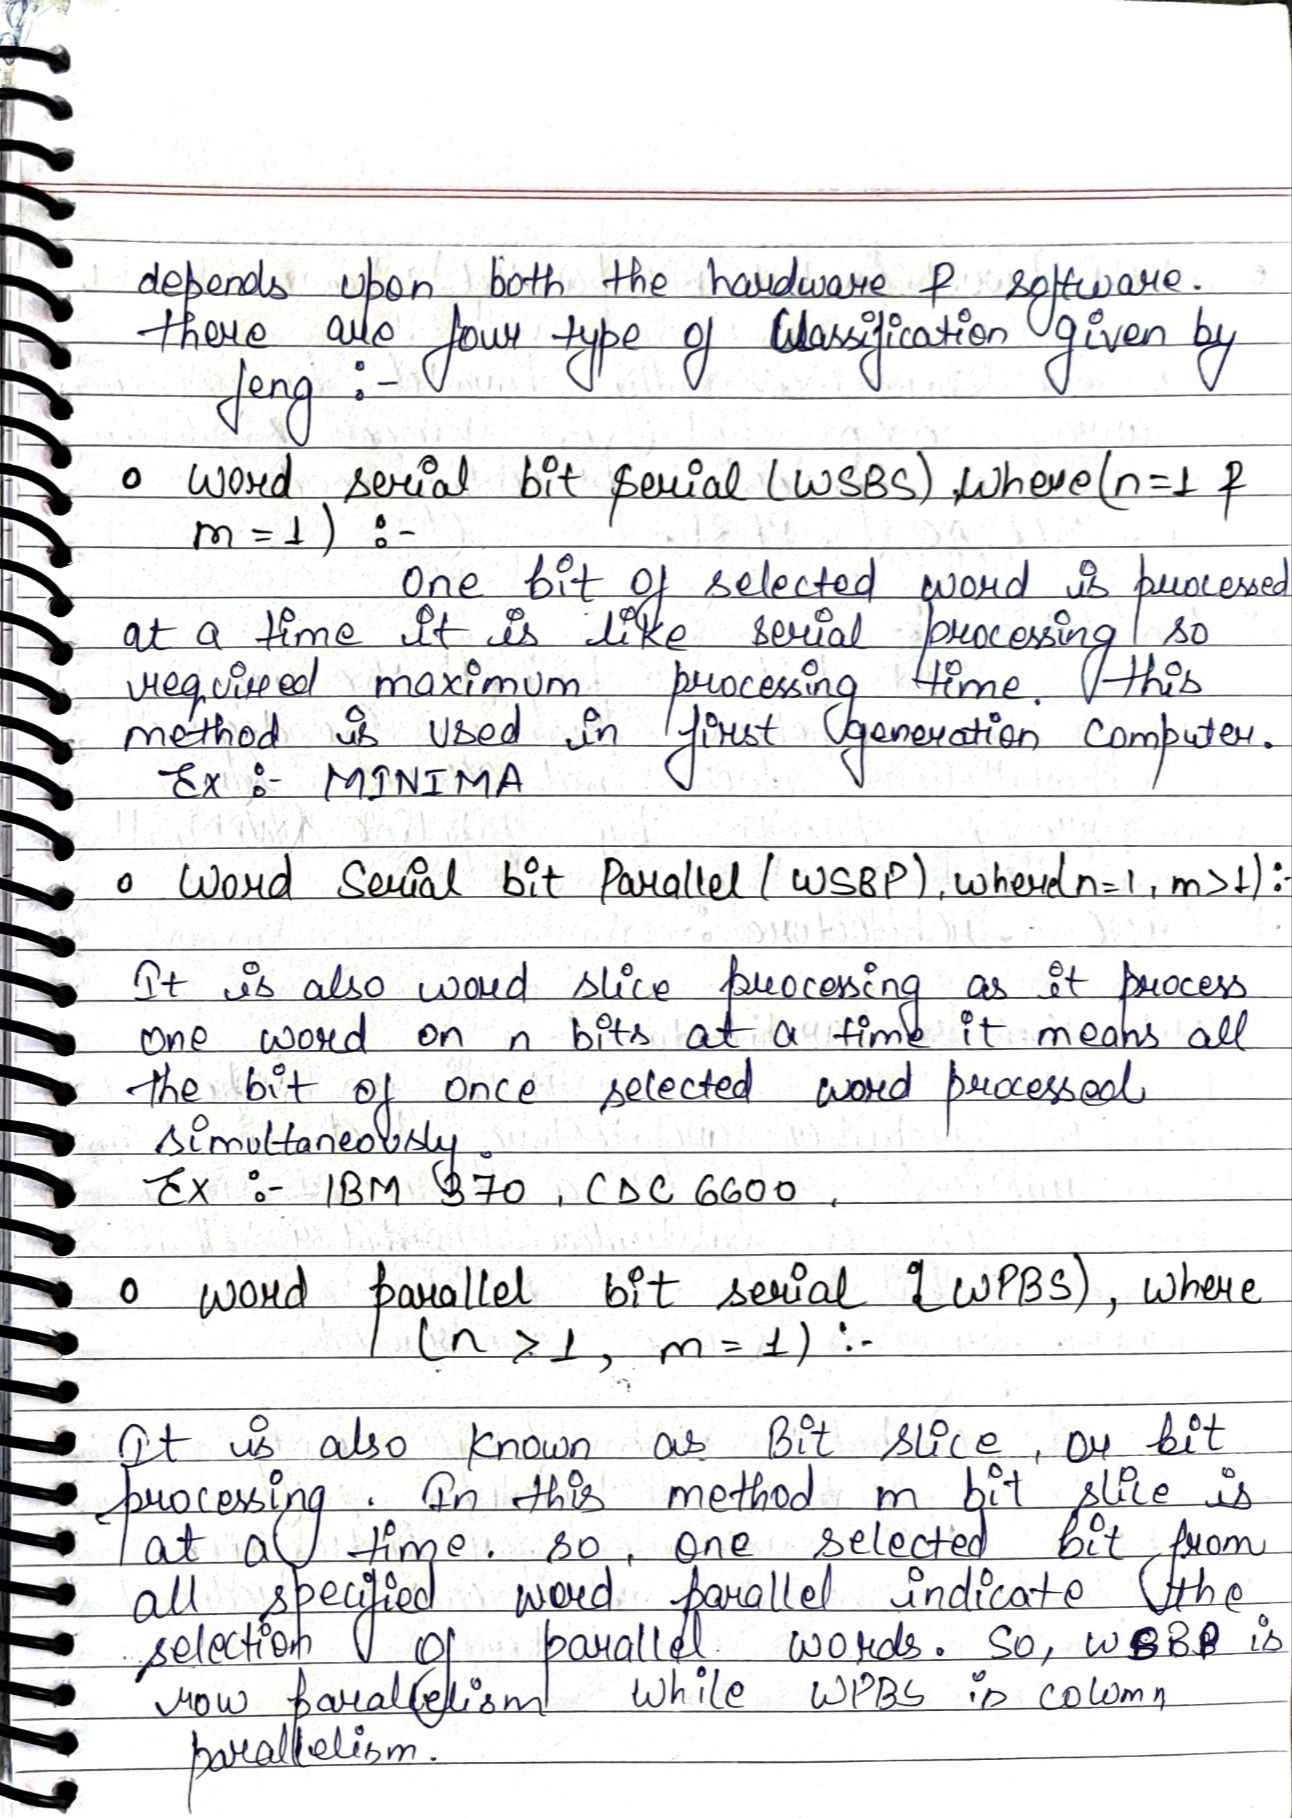 depends upon both the hardware & software.
there are four type of classification given by
feng :-
o word serial bit serial (WSBS), where (n=1 &
m = 1) :-
One bit of selected word is processed
at a time it is like serial processing so
required maximum processing time. this
method is used in first generation computer.
Ex :- MINIMA
o Word Serial bit Parallel (WSBP), where(n=1, m>1):-
It is also word slice processing as it process
one word on n bits at a time it means all
the bit of once selected word processed
simultaneously.
Ex :- IBM 370, CDC 6600,
o word parallel bit serial (WPBS), where
(n > 1, m = 1) :-
It is also known as Bit slice, or bit
processing. In this method m bit slice is
at a time. so, one selected bit from
all specified word parallel indicate the
selection of parallel words. So, WSBP is
row parallelism while WPBS is column
parallelism.